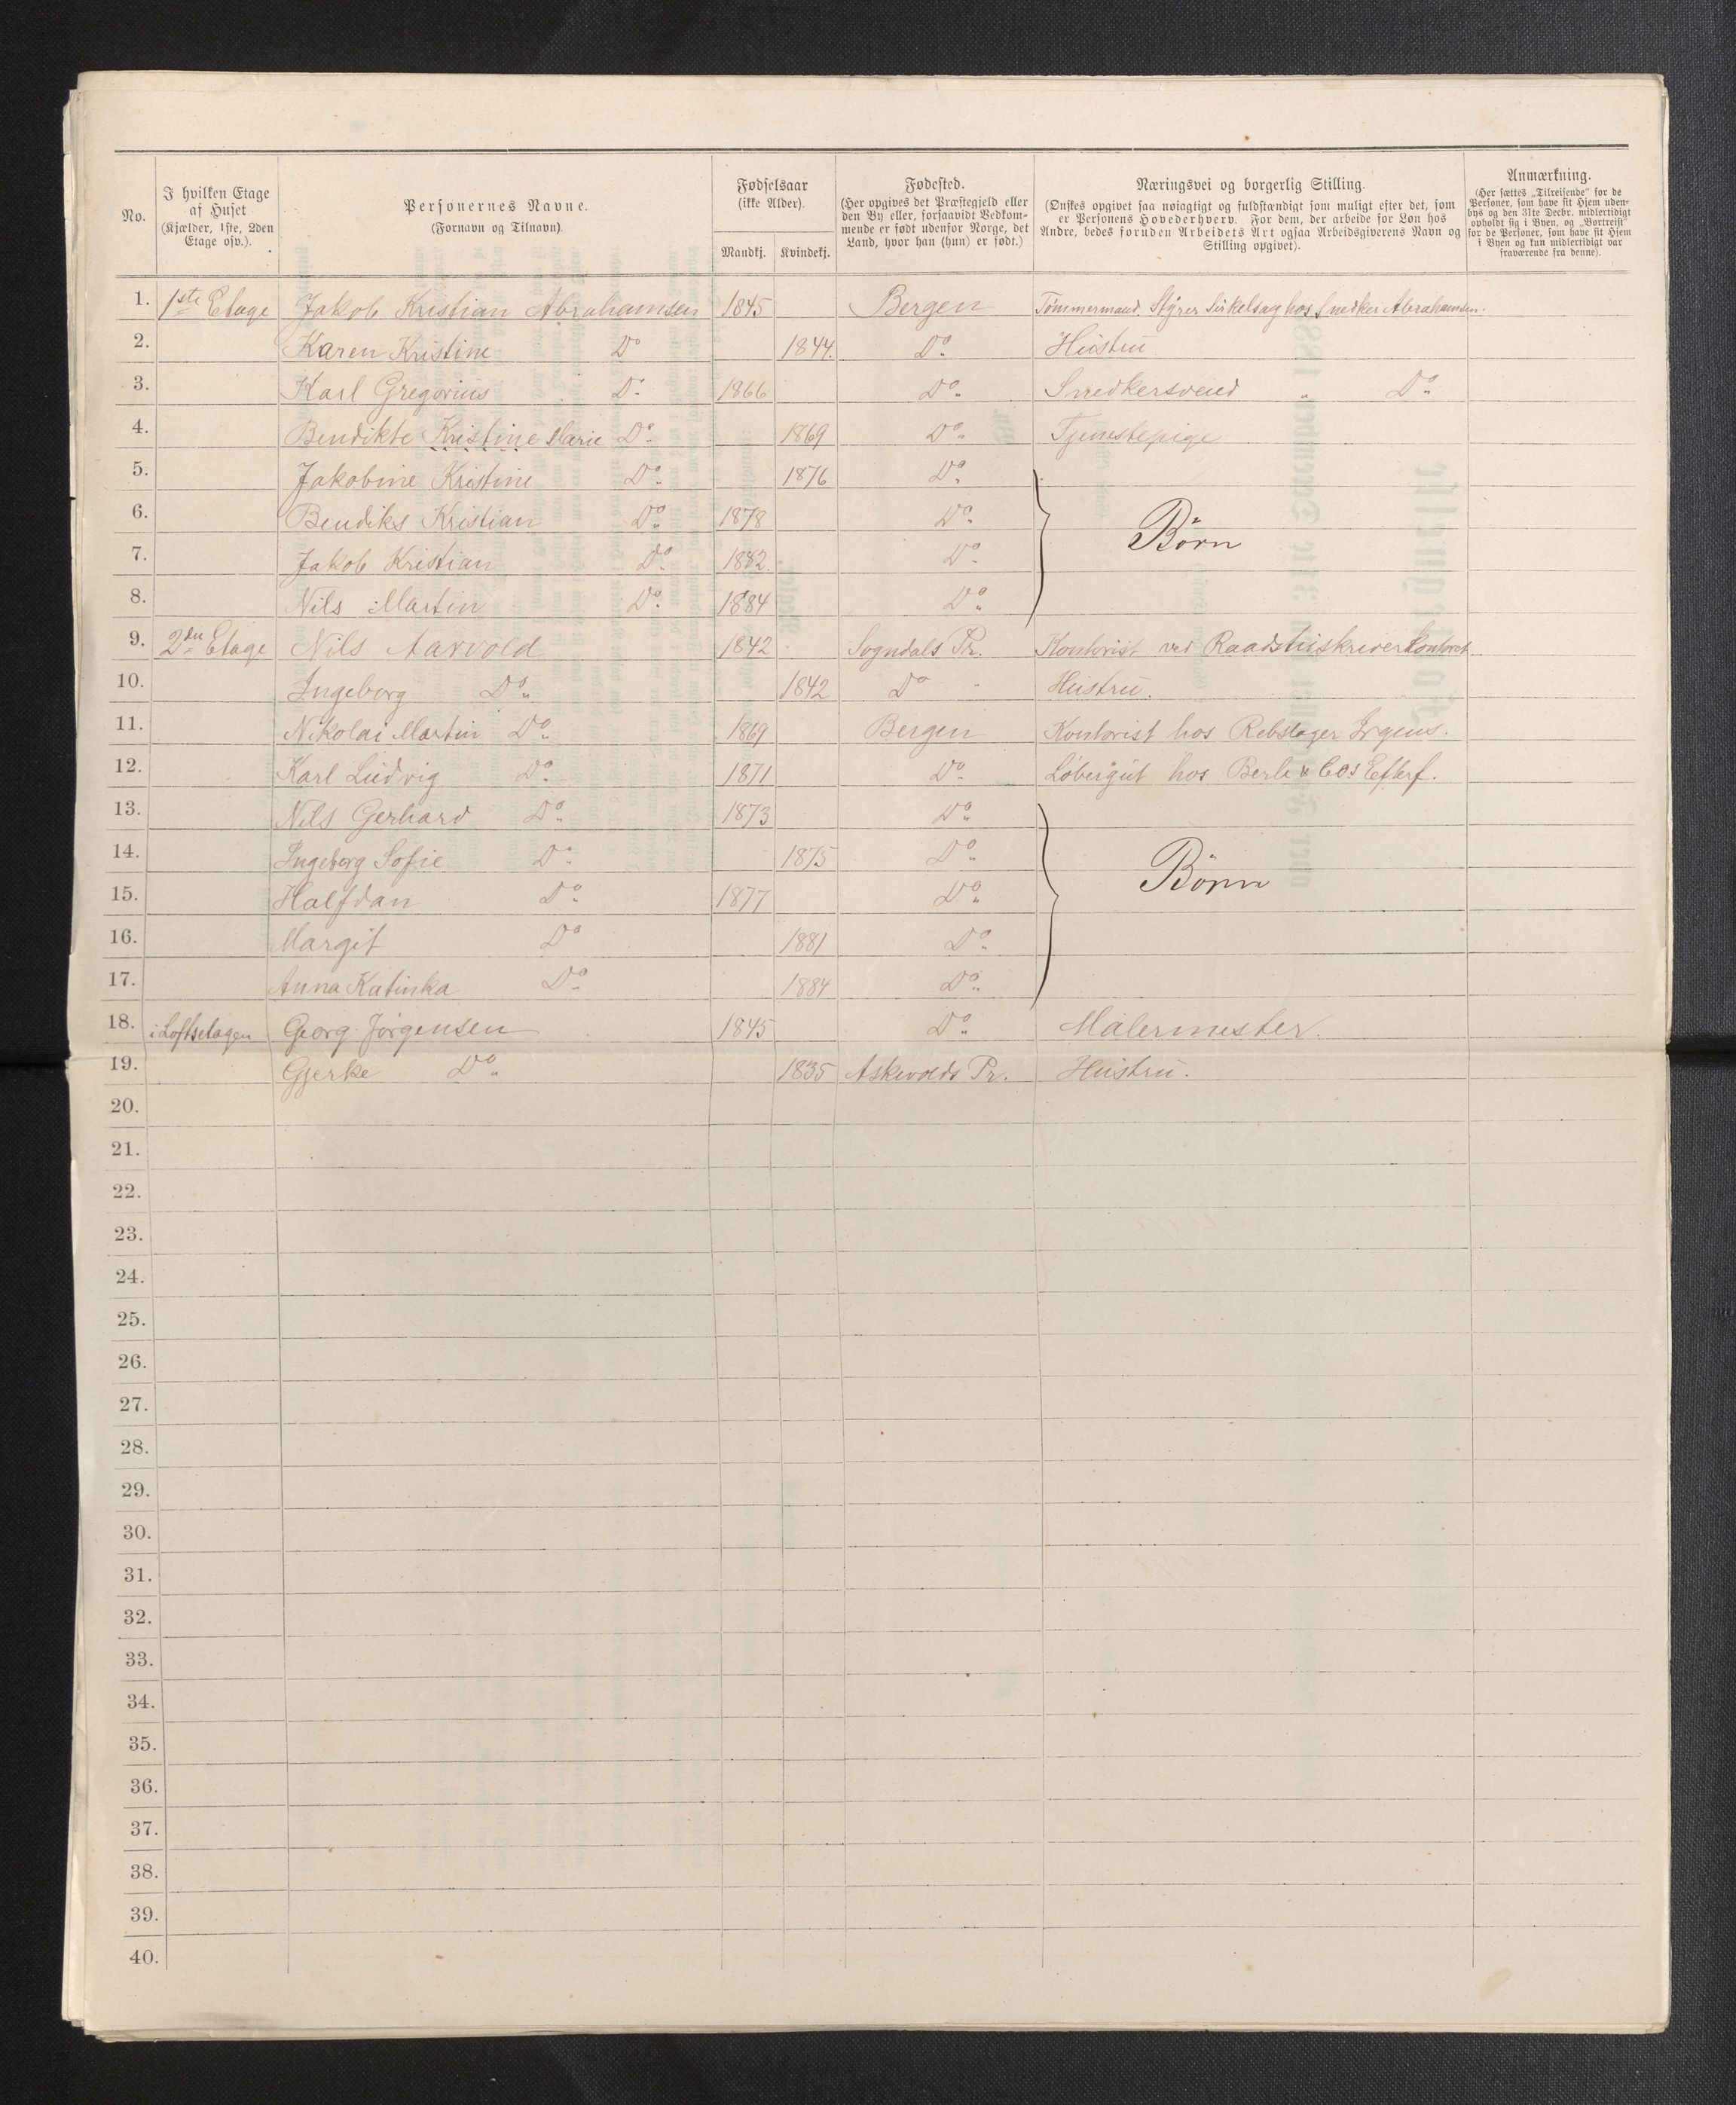 No.
I hvilken Etage af Huset (Kjælder, 1ste, 2den Etage osv.).
Personernes Navne. (Fornavn og Tilnavn).
Fødselsaar (ikke Alder). Mandkj. Kvindekj.
Fødested. (Her opgives det Præstegjeld eller den By eller, forsaavidt Vedkommende er født udenfor Norge, det Land, hvor han (hun) er født.)
Næringsvei og borgerlig Stilling. (Ønskes opgivet saa nøiagtigt og fuldstændigt som muligt efter det, som er Personens Hovederhverv. For dem, der arbeide for Løn hos Andre, bedes foruden Arbeidets Art ogsaa Arbeidsgiverens Navn og Stilling opgivet).
Anmærkning. (Her sættes „Tilreisende" for de Personer, som have sit Hjem udenbys og den 31te Decbr. midlertidigt opholdt sig i Byen, og „Bortreist" for de Personer, som have sit Hjem i Byen og kun midlertidigt var fraværende fra denne).
1. 1ste Etage Jakob Kristian Abrahamsen 1845 Bergen Tømmermand, Styrer Sirkelsag hos Snedker Abrahamsen.
2. Karen Kristine Do 1844. Do Hustru
3. Karl Gregorius Do 1866 Do Snedkersvend " Do
4. Bendikte Kristine Marie Do 1869 Do Tjenestepige
5. Jakobine Kristine Do 1876 Do
6. Bendiks Kristian Do 1878 Do Børn
7. Jakob Kristian Do 1882. Do
8. Nils Martin Do 1884 Do
9. 2den Etage Nils Aarvold 1842 Sogndals Pr. Kontorist ved Raadstuskriverkontoret
10. Ingeborg Do 1842 Do " Hustru.
11. Nikolai Martin Do 1869 Bergen Kontorist hos Rebslager Irgens.
12. Karl Ludvig Do 1871 Do Løbergut hos Berle & Cos Efterf.
13. Nils Gerhard Do 1873 Do
14. Ingeborg Sofie Do 1875 Do Børn
15. Halfdan Do 1877 Do
16. Margit Do 1881 Do
17. Anna Katinka Do 1884 Do
18. i Loftsetagen Georg Jørgensen 1845 Do Malermester.
19. Gjerke Do 1835 Askevolds Pr. Hustru.
20.
21.
22.
23.
24.
25.
26.
27.
28.
29.
30.
31.
32.
33.
34.
35.
36.
37.
38.
39.
40.